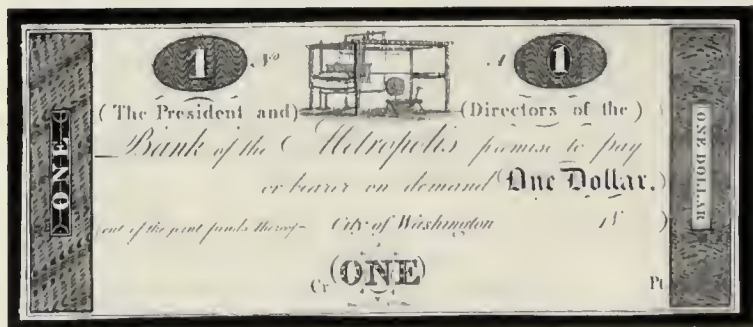 1 No A 1
(The President and) (Directors of the)
Bank of the Metropolis promise to pay
or bearer on demand One Dollar.)
out of the joint funds thereof City of Washington 18 )
(ONE)
Cr Pt
ONE
ONE DOLLAR